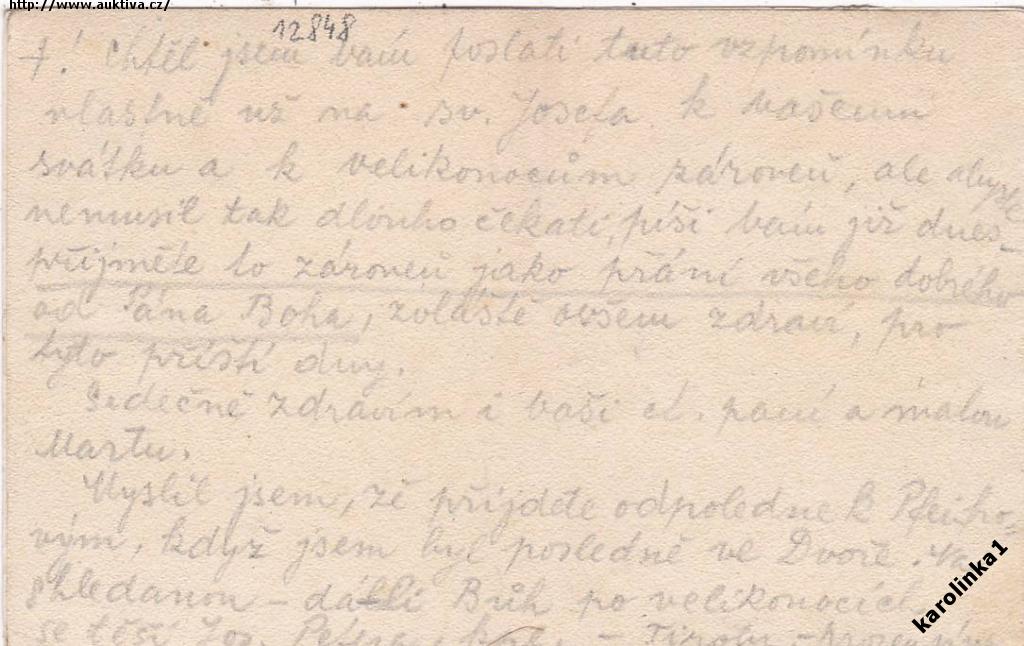 http://www.auktiva.cz/
12848
+! Chtěl jsem vám poslati tuto vzpomínku
vlastně už na sv. Josefa k vašemu
svátku a k velikonocům zároveň, ale abyste
nemusil tak dlouho čekati, píši vám již dnes –
přijměte to zároveň jako přání všeho dobrého
od Pána Boha, zvláště ovšem zdraví, pro
tyto příští dny.
Srdečně zdravím i vaši ct. paní a malou
Martu.
Myslil jsem, že přijdete odpoledne k
vým, když jsem byl posledně ve Dvoře. Na
shledanou – dá-li Bůh po velikonocích
se těší Jos.
karolinka1